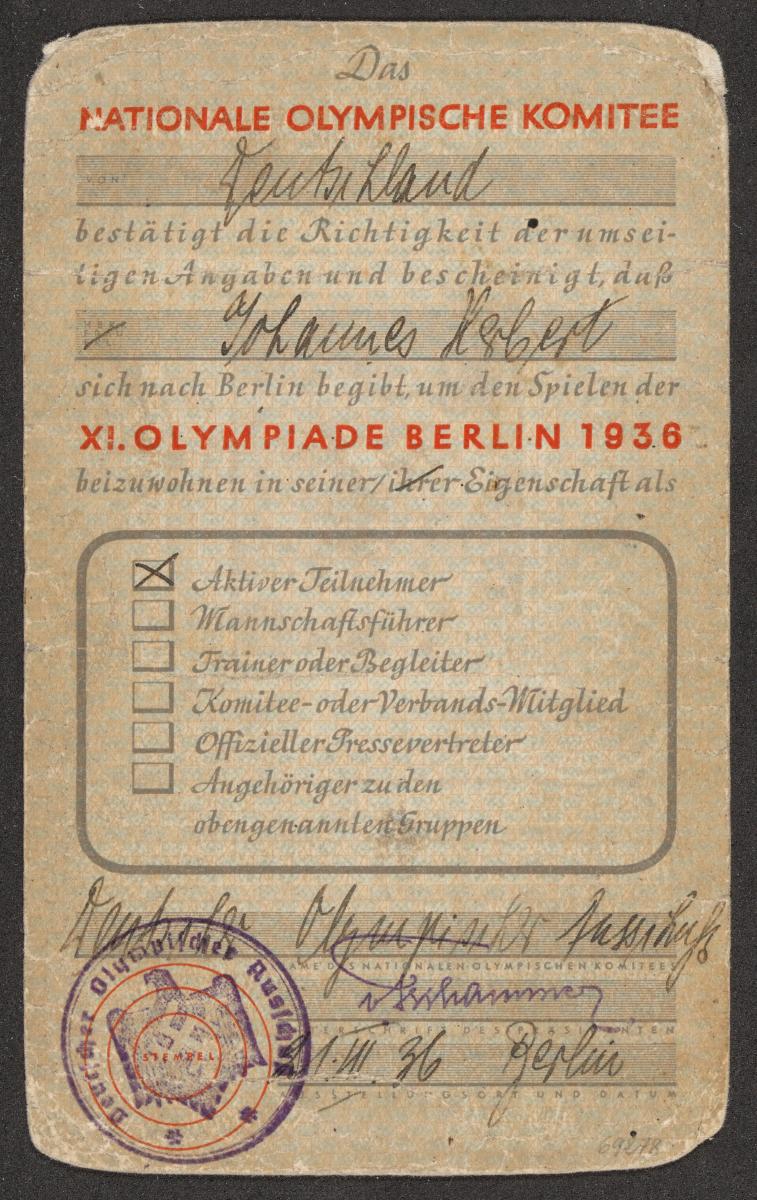 Das
NATIONALE OLYMPISCHE KOMITEE
VON Deutschland
bestätigt die Richtigkeit der umsei-
tigen Angaben und bescheinigt, daß
Johannes Herbert
sich nach Berlin begibt, um den Spielen der
XI. OLYMPIADE BERLIN 1936
beizuwohnen in seiner/ihrer Eigenschaft als
Aktiver Teilnehmer
Mannschaftsführer
Trainer oder Begleiter
Komitee- oder Verbands-Mitglied
Offizieller Pressevertreter
Angehöriger zu den
obengenannten Gruppen
Deutscher Olympischer Ausschuß
NAME DES NATIONALEN OLYMPISCHEN KOMITEES
UNTERSCHRIFT DES PRÄSIDENTEN
Deutscher Olympischer Ausschuß
STEMPEL
1. III. 36 Berlin
AUSSTELLUNGSORT UND DATUM